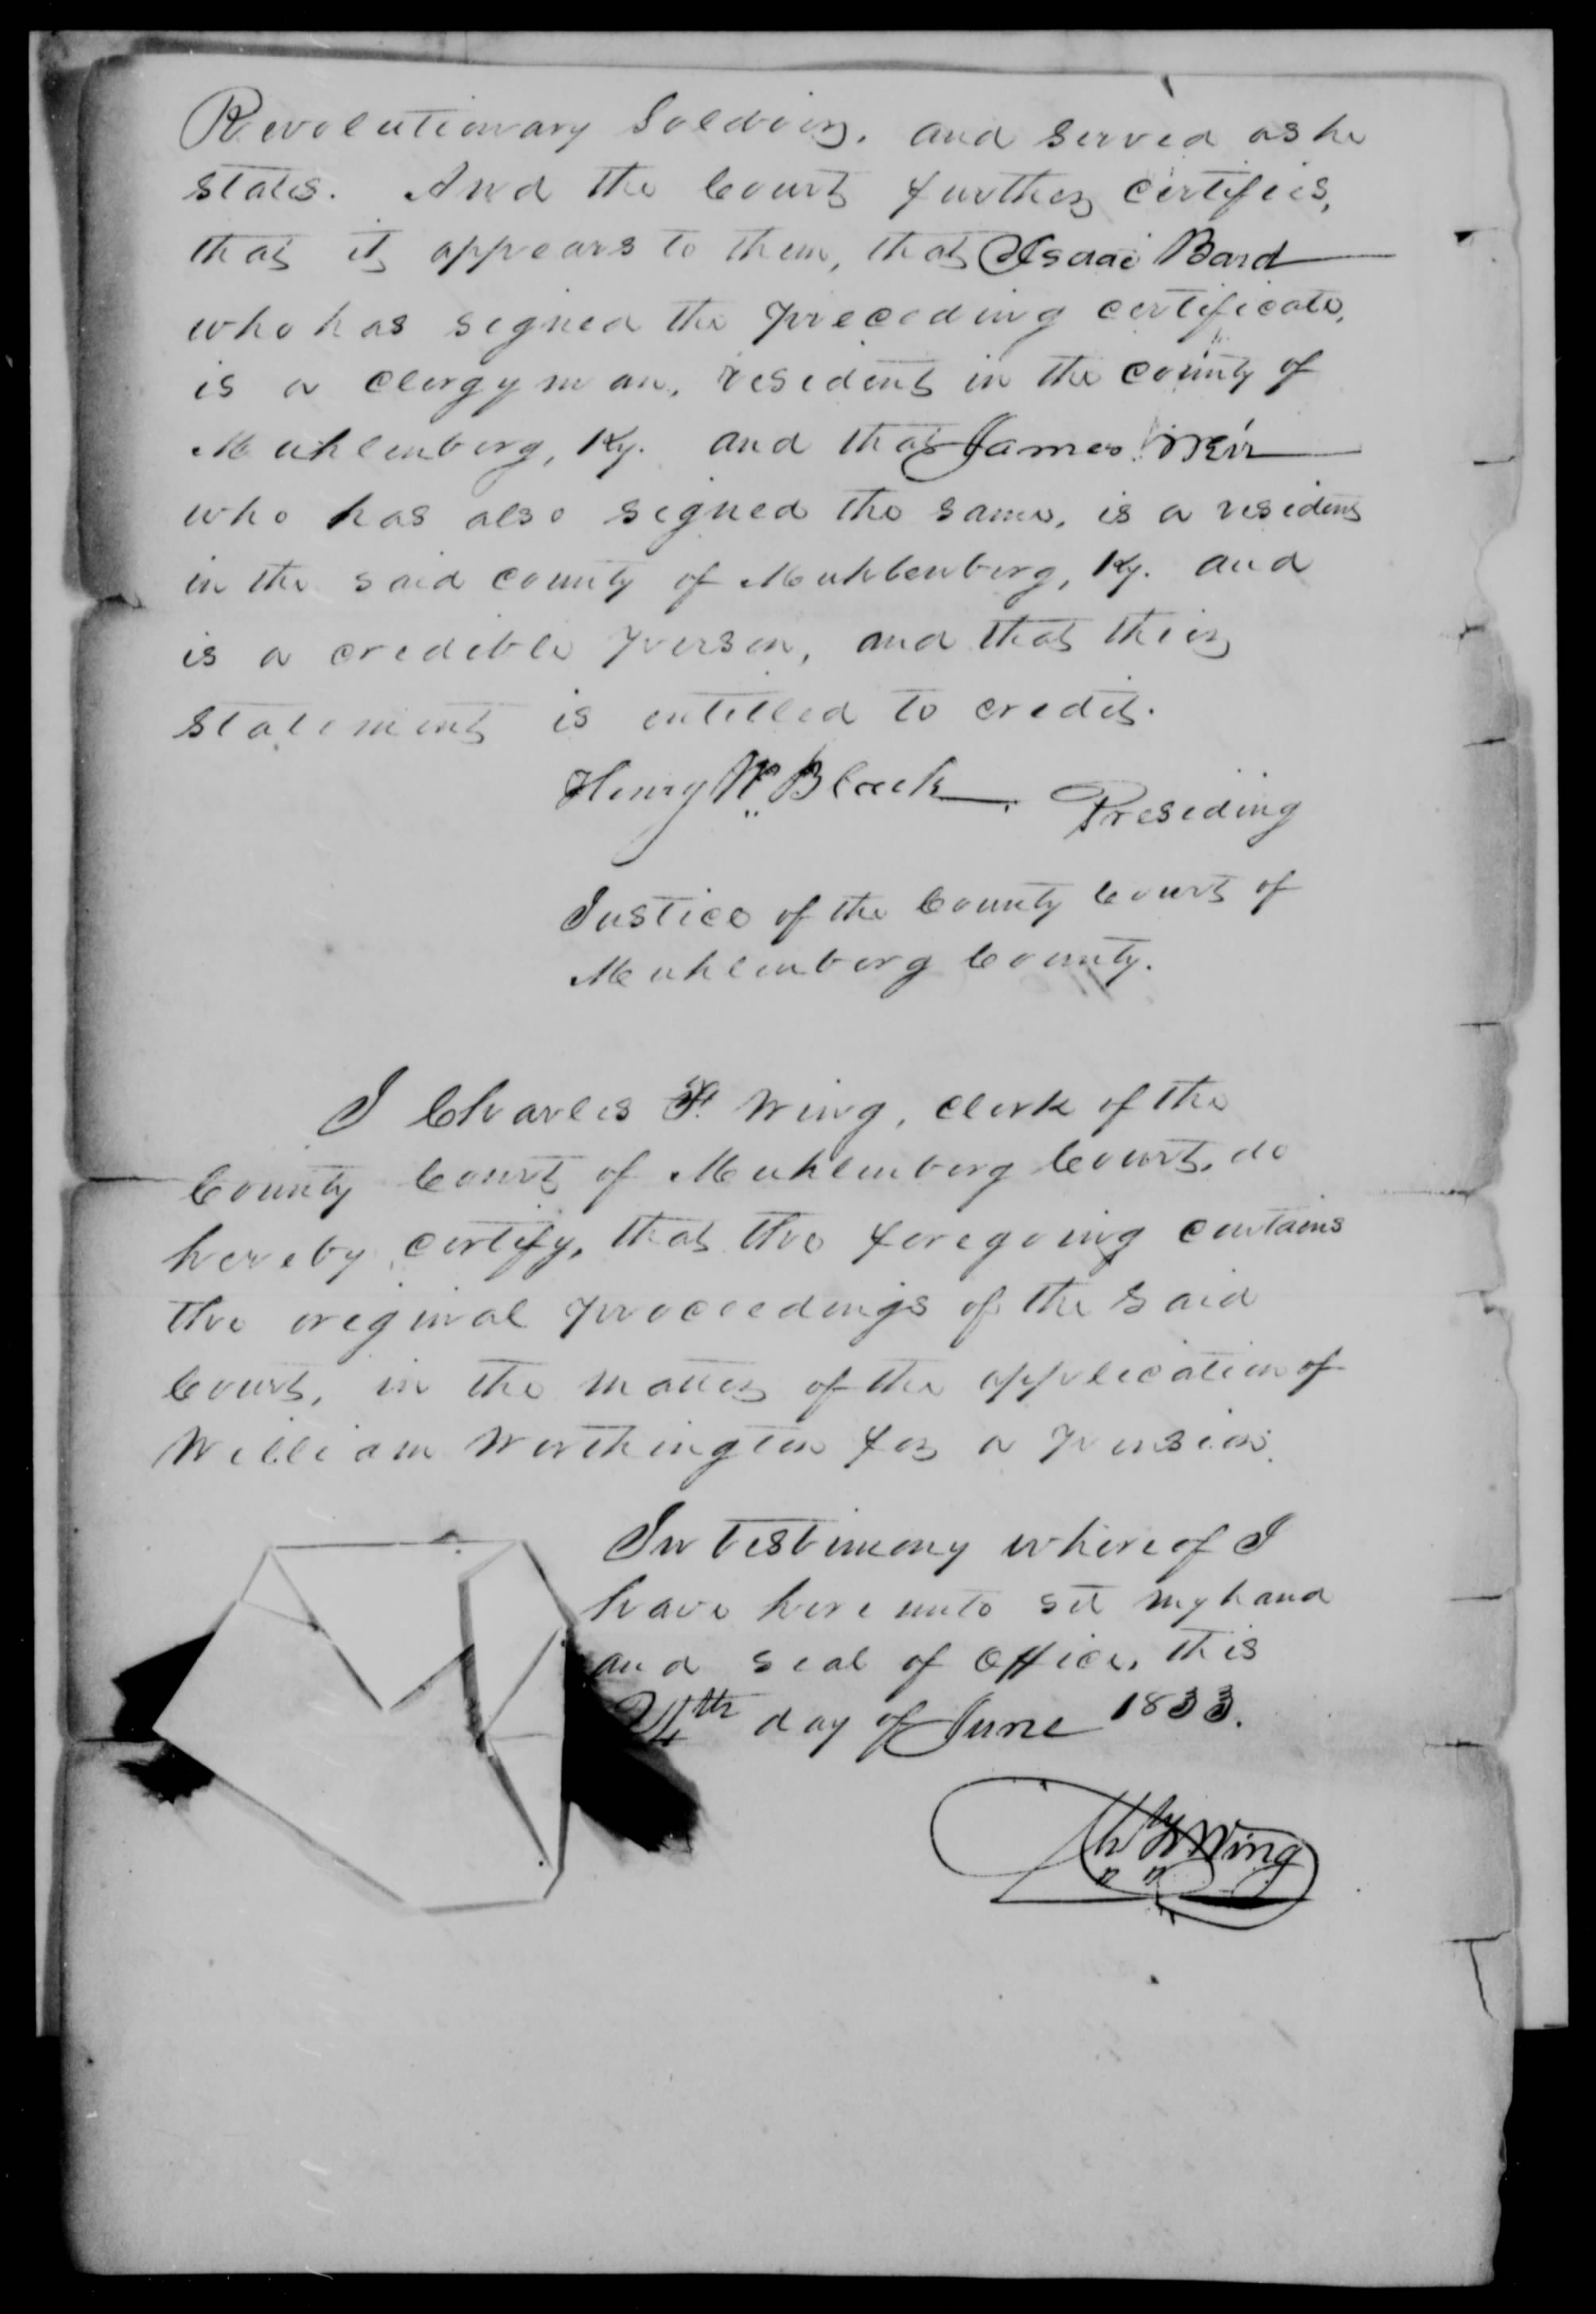 Revolutionary Soldier, and served as he
states. And the Court further certifies,
that it appears to them, that Isaac Bard
who has signed the preceding certificate,
is a clergyman, resident in the county of
Muhlenberg, Ky. and that James Weir
who has also signed the same, is a resident
in the said county of Muhlenberg, Ky. and
is a credible person, and that their
statement is entitled to credit.
Henry W. Black Presiding
Justice of the County Court of
Muhlenberg County.
I Charles F. Wing, clerk of the
County Court of Muhlenberg Court, do
hereby certify, that the foregoing contains
the original proceedings of the said
Court, in the matter of the application of
William Worthington for a pension.
In testimony whereof I
have hereunto set my hand
and seal of office, this
24th day of June 1833.
Chs F Wing